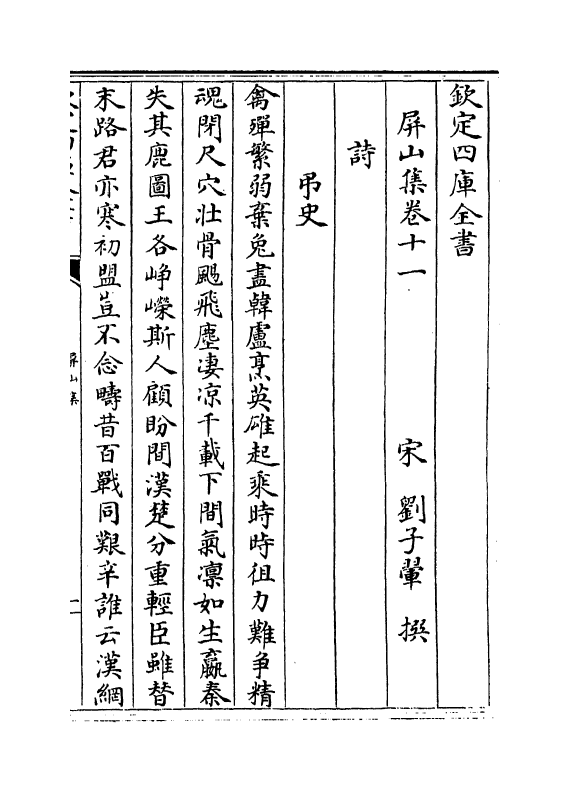 欽定四庫全書
屏山集卷十一
宋 劉子翬 撰
詩
弔史
禽殫繁弱棄兔盡韓盧烹英雄起乘時時徂力難争精
魂閉尺穴壯骨颺飛塵淒凉千載下間氣凛如生嬴秦
失其鹿圖王各峥嶸斯人顧盼間漢楚分重輕臣雖替
末路君亦寒初盟豈不念疇昔百戰同艱辛誰云漢綱
屏山集
一